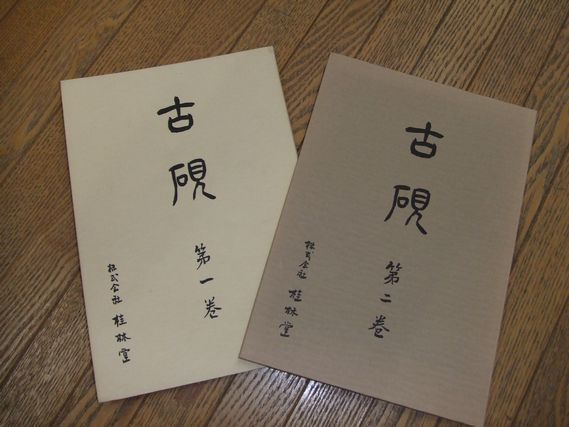 古硯
第一巻
株式会社 桂林堂
古硯
第二巻
株式会社 桂林堂